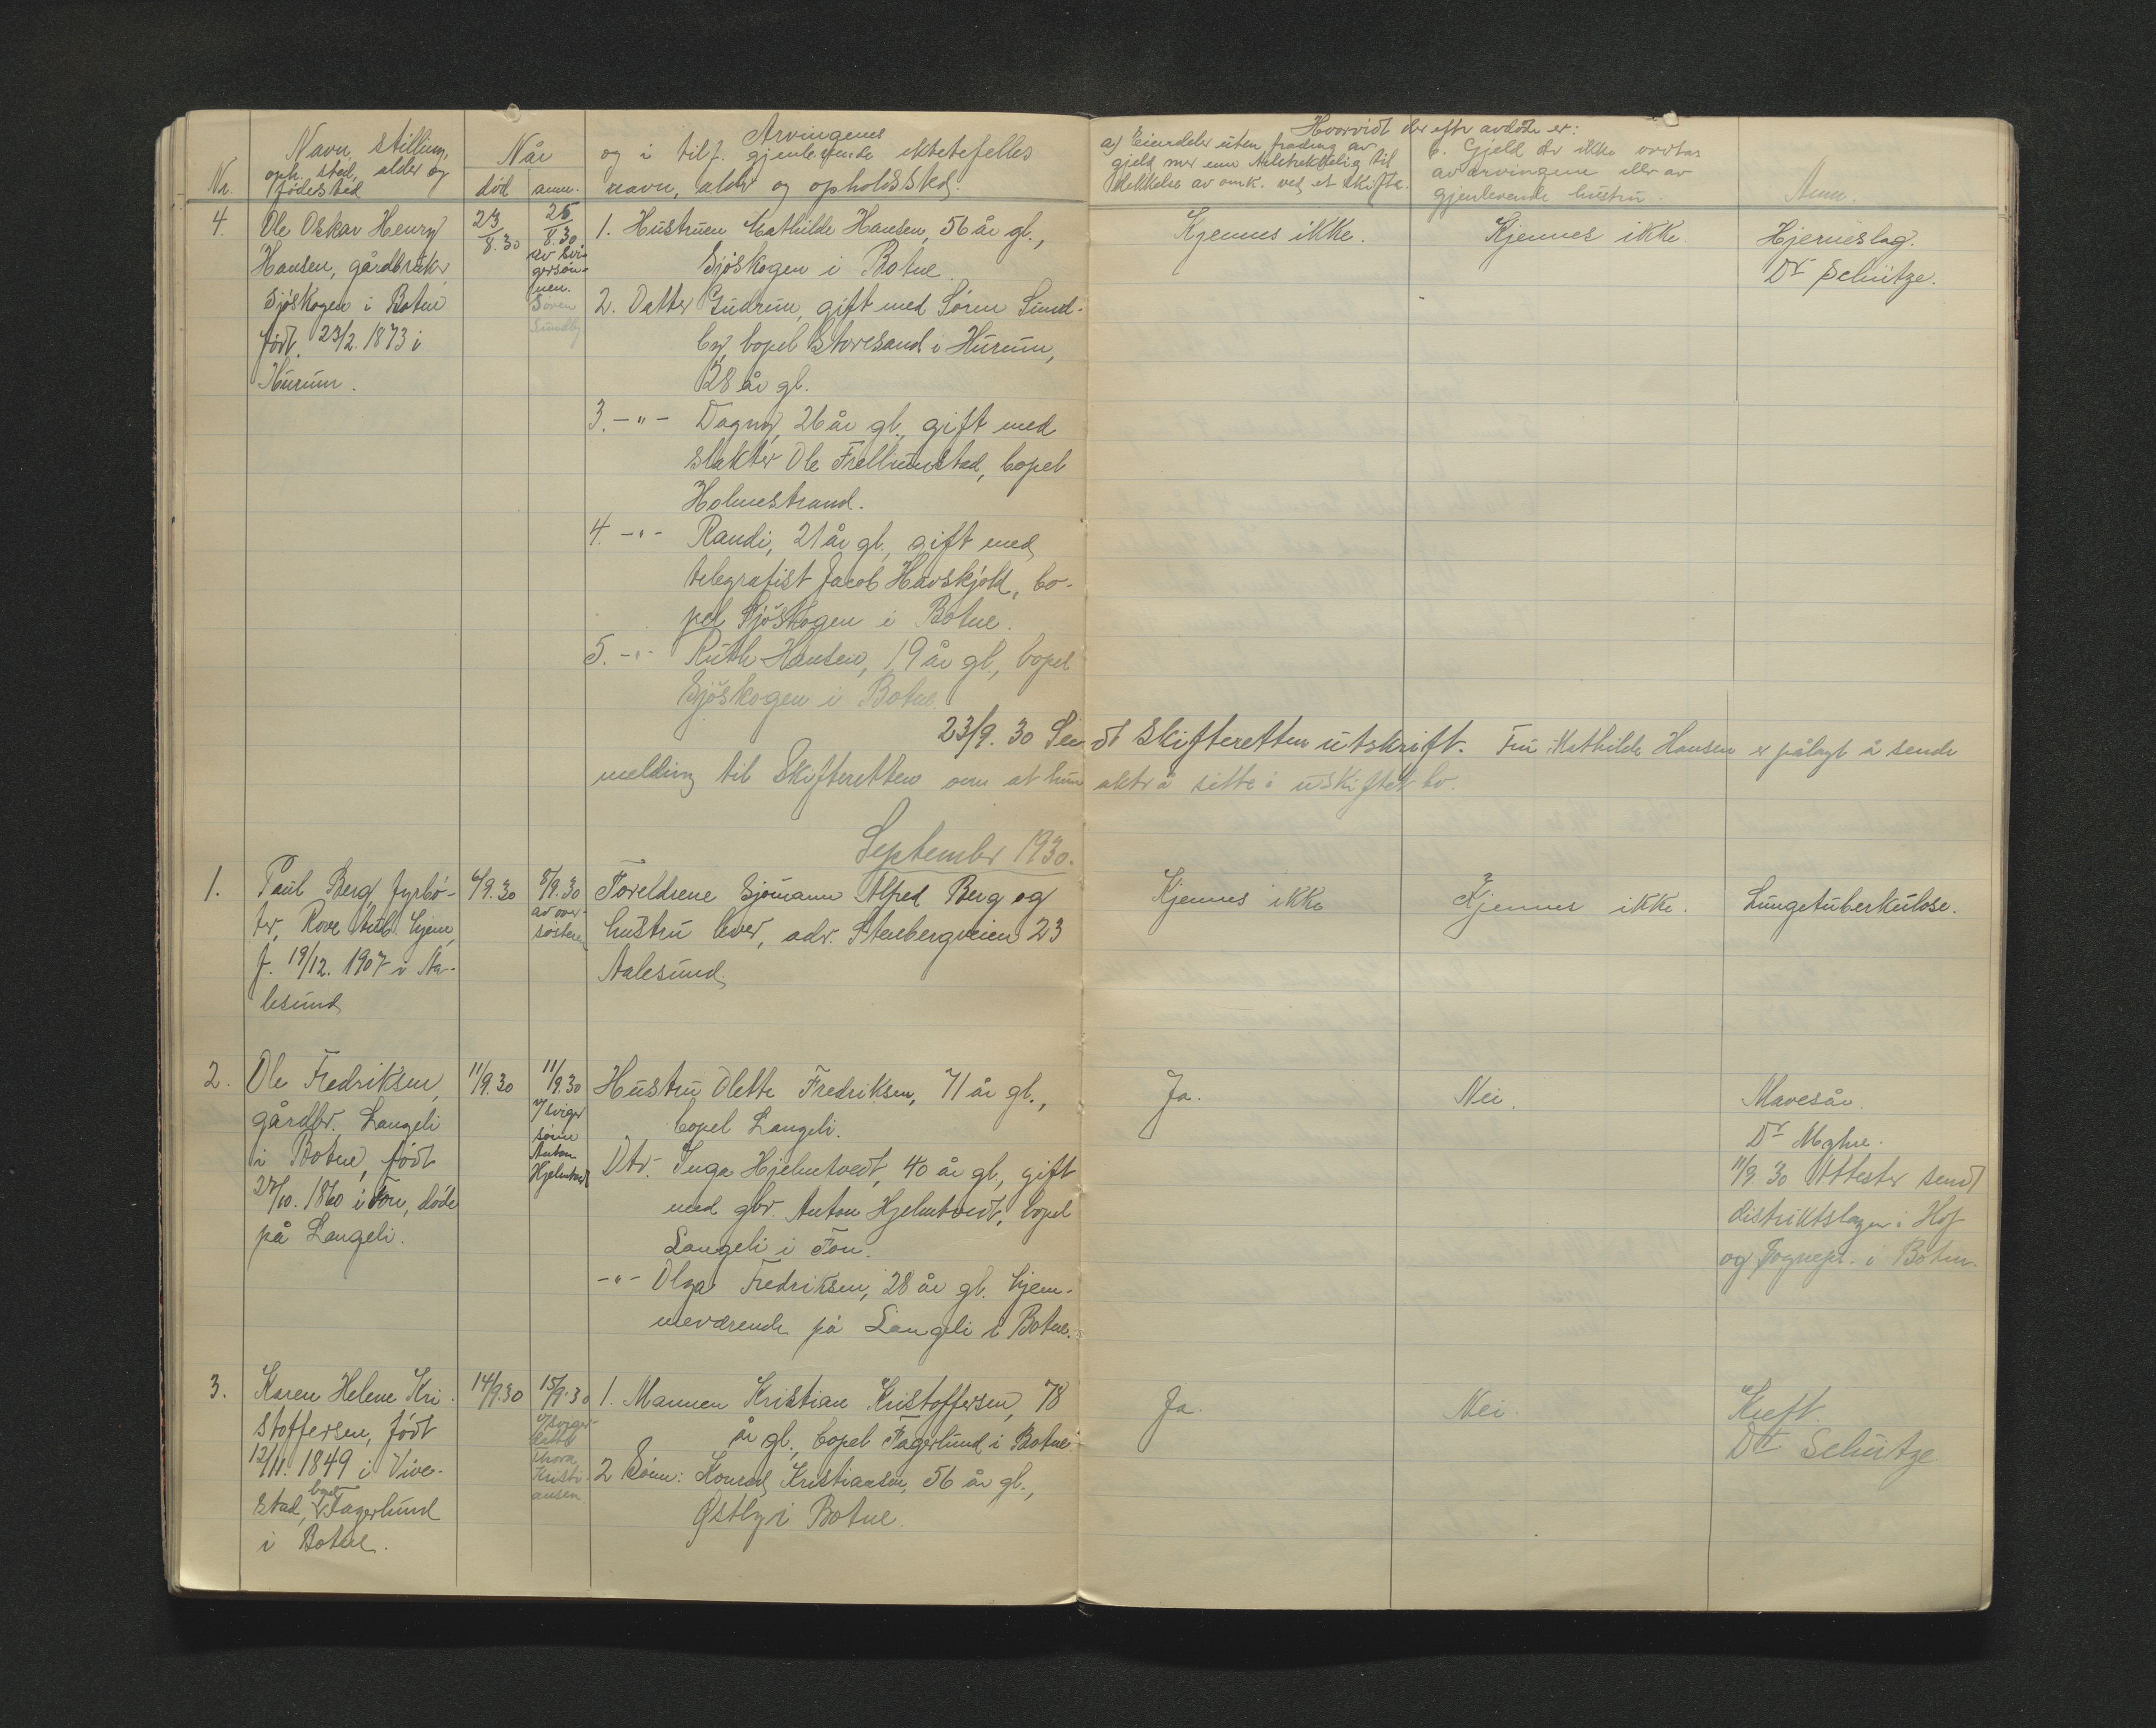 Navn, stilling,
oph. sted, alder og
fødested
Nr.
Når
død
anm.
Arvingenes
og i tilf. gjenlevende ektefelles
navn, alder og opholdssted.
Hvorvidt der efter avdøde er:
a) Eiendeler uten fradrag av
gjeld mer enn tilstrekkelig til
dekkelse av omk. ved et skifte.
b. Gjeld der ikke overtas
av arvingene eller av
gjenlevende hustru.
Anm.
4.
Ole Oskar Henry
Hansen, gårdbruker
Sjöskogen i Botne
født 23/2. 1873 i
Hurum.
23/8.30
25/8.30
av svi-
gersøn-
nen.
Søren
Sundby
1. Hustruen Mathilde Hansen, 56 år gl.,
Sjöskogen i Botne.
2. Datter Gudrun, gift med Sören Sund-
by, bopel Storesand i Hurum,
28 år gl.
3. -"- Dagny, 26 år gl., gift med
slakter Ole Frellumstad, bopel
Holmestrand.
4. -"- Randi, 21 år gl., gift med
telegrafist Jacob Havskjold, bo-
pel Sjöskogen i Botne.
5. -"- Ruth Hansen, 19 år gl., bopel
Sjöskogen i Botne.
Kjennes ikke.
Kjennes ikke
Hjerneslag.
Dr Schütze.
23/9. 30 Sendt Skifteretten utskrift. Fru Mathilde Hansen er pålagt å sende
melding til Skifteretten om at hun akter å sitte i uskiftet bo.
September 1930.
1.
Paul Berg, fyrbö-
ter, Rove tub. hjem,
f. 19/12. 1907 i Aa-
lesund
6/9.30
8/9.30
av over-
søsteren
Foreldrene Sjömann Alfred Berg og
hustru lever, adr. Stenbergveien 23
Aalesund.
Kjennes ikke
Kjennes ikke.
Lungetuberkulose.
2.
Ole Fredriksen,
gårdbr. Langeli
i Botne, född
27/10. 1860 i Fon, døde
på Langeli.
11/9.30
11/9.30
v/ sviger
sönn
Anton
Hjelmtvedt
Hustru Olette Fredriksen, 71 år gl.,
bopel Langeli.
Dtr. Inga Hjelmtvedt, 40 år gl., gift
med gbr. Anton Hjelmtvedt, bopel
Langeli i Fon.
-"- Olga Fredriksen, 28 år gl. hjem-
meværende på Langeli i Botne.
Ja.
Nei.
Mavesår.
Dr Myhre.
11/9.30 Attester sendt
distriktslegen i Hof
og Sognepr. i Botne.
3.
Karen Helene Kri-
stoffersen, född
12/11. 1849 i Vive-
stad, bopel Fagerlund
i Botne.
14/9.30
15/9.30
v/ sviger-
datter
Thora
Kristi-
ansen.
1. Mannen Kristian Kristoffersen, 78
år gl., bopel Fagerlund i Botne.
2 Sönn: Konrad Kristiansen, 56 år gl.,
Østby i Botne.
Ja.
Nei.
Kreft.
Dr Schütze